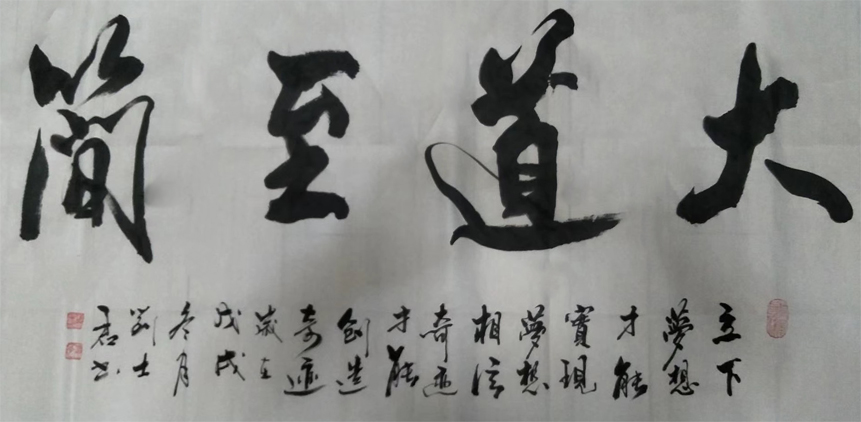 大道至簡
立下
夢想
才能
實現
夢想
相信
奇迹
才能
創造
奇迹
歲在
戊戌
冬月
劉士
君书